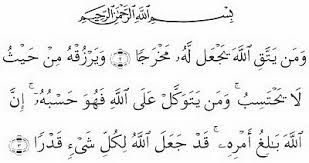 بِسْمِ اللَّهِ الرَّحْمَٰنِ الرَّحِيمِ
وَمَن يَتَّقِ اللَّهَ يَجْعَل لَّهُۥ مَخْرَجًا ﴿٢﴾ وَيَرْزُقْهُ مِنْ حَيْثُ
لَا يَحْتَسِبُ ۚ وَمَن يَتَوَكَّلْ عَلَى اللَّهِ فَهُوَ حَسْبُهُۥٓ ۚ إِنَّ
اللَّهَ بَٰلِغُ أَمْرِهِۦ ۚ قَدْ جَعَلَ اللَّهُ لِكُلِّ شَىْءٍ قَدْرًا ﴿٣﴾